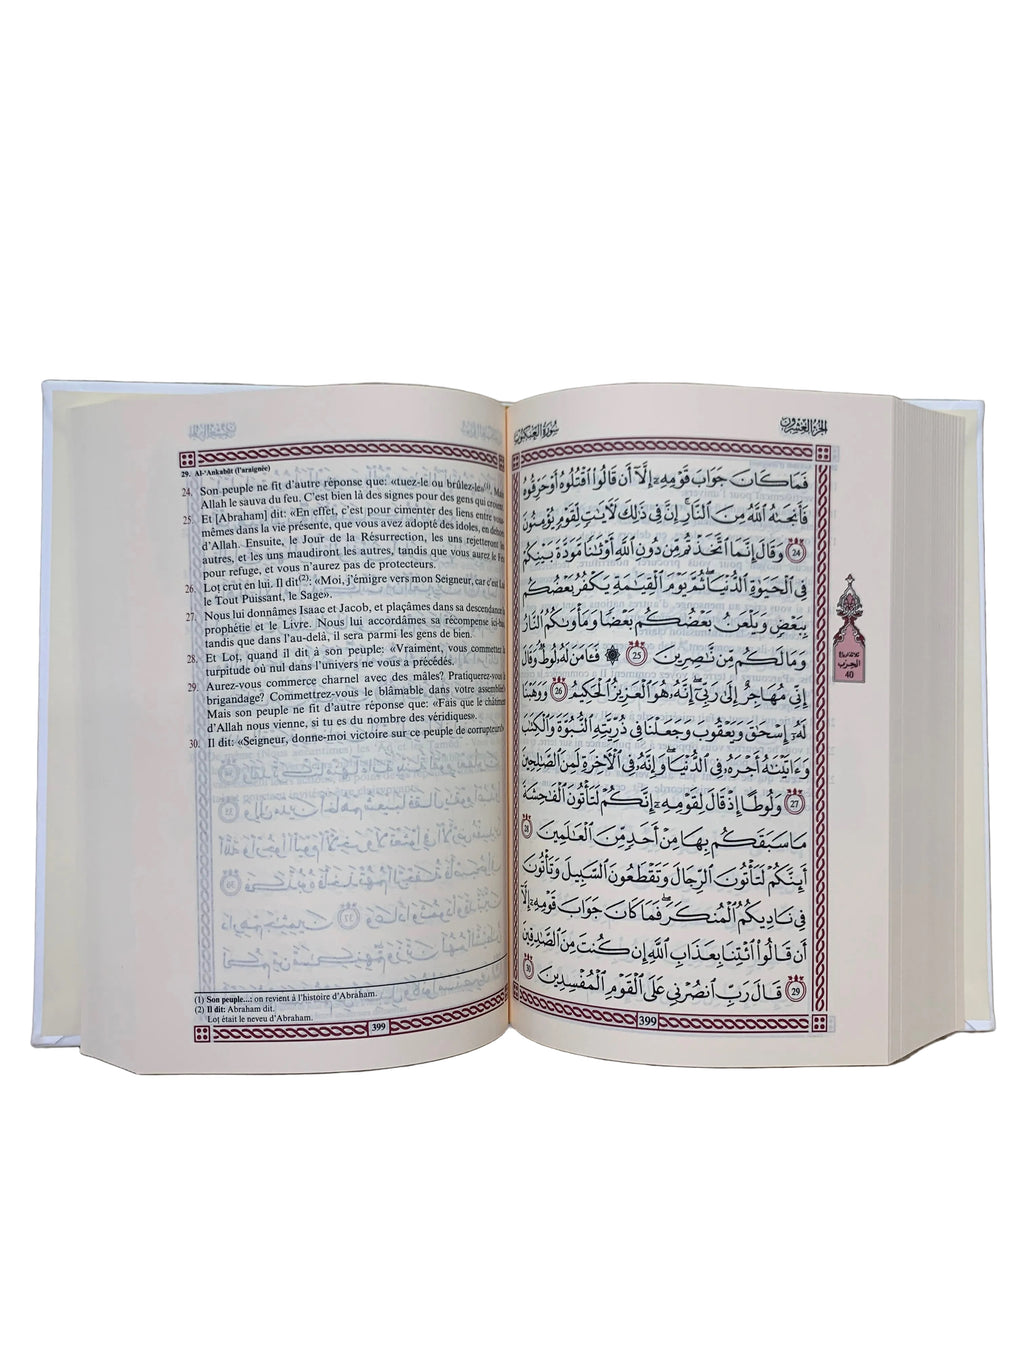 29. Al-‘Ankabût (l’araignée)
24. Son peuple ne fit d’autre réponse que: «tuez-le ou brûlez-le»(1). Mais
Allah le sauva du feu. C’est bien là des signes pour des gens qui croient.
25. Et [Abraham] dit: «En effet, c’est pour cimenter des liens entre vous-
mêmes dans la vie présente, que vous avez adopté des idoles, en dehors
d’Allah. Ensuite, le Jour de la Résurrection, les uns rejetteront les
autres, et les uns maudiront les autres, tandis que vous aurez le Feu
pour refuge, et vous n’aurez pas de protecteurs.
26. Loṭ crut en lui. Il dit(2): «Moi, j’émigre vers mon Seigneur, car c’est Lui
le Tout Puissant, le Sage».
27. Nous lui donnâmes Isaac et Jacob, et plaçâmes dans sa descendance la
prophétie et le Livre. Nous lui accordâmes sa récompense ici-bas,
tandis que dans l’au-delà, il sera parmi les gens de bien.
28. Et Loṭ, quand il dit à son peuple: «Vraiment, vous commettez la
turpitude où nul dans l’univers ne vous a précédés.
29. Aurez-vous commerce charnel avec des mâles? Pratiquerez-vous le
brigandage? Commettrez-vous le blâmable dans votre assemblée?»
Mais son peuple ne fit d’autre réponse que: «Fais que le châtiment
d’Allah nous vienne, si tu es du nombre des véridiques».
30. Il dit: «Seigneur, donne-moi victoire sur ce peuple de corrupteurs!»
(1) Son peuple...: on revient à l’histoire d’Abraham.
(2) Il dit: Abraham dit.
Loṭ était le neveu d’Abraham.
399
سورة العنكبوت
الجزء العشرون
فَمَا كَانَ جَوَابَ قَوْمِهِۦٓ إِلَّآ أَن قَالُوا۟ ٱقْتُلُوهُ أَوْ حَرِّقُوهُ
فَأَنجَىٰهُ ٱللَّهُ مِنَ ٱلنَّارِ ۚ إِنَّ فِى ذَٰلِكَ لَـَٔايَـٰتٍ لِّقَوْمٍ يُؤْمِنُونَ
24 وَقَالَ إِنَّمَا ٱتَّخَذْتُم مِّن دُونِ ٱللَّهِ أَوْثَـٰنًا مَّوَدَّةَ بَيْنِكُمْ
فِى ٱلْحَيَوٰةِ ٱلدُّنْيَا ۖ ثُمَّ يَوْمَ ٱلْقِيَـٰمَةِ يَكْفُرُ بَعْضُكُم
بِبَعْضٍ وَيَلْعَنُ بَعْضُكُم بَعْضًا وَمَأْوَىٰكُمُ ٱلنَّارُ
وَمَا لَكُم مِّن نَّـٰصِرِينَ 25 ۞ فَـَٔامَنَ لَهُۥ لُوطٌ ۘ وَقَالَ
إِنِّى مُهَاجِرٌ إِلَىٰ رَبِّىٓ ۖ إِنَّهُۥ هُوَ ٱلْعَزِيزُ ٱلْحَكِيمُ 26 وَوَهَبْنَا
لَهُۥٓ إِسْحَـٰقَ وَيَعْقُوبَ وَجَعَلْنَا فِى ذُرِّيَّتِهِ ٱلنُّبُوَّةَ وَٱلْكِتَـٰبَ
وَءَاتَيْنَـٰهُ أَجْرَهُۥ فِى ٱلدُّنْيَا ۖ وَإِنَّهُۥ فِى ٱلْـَٔاخِرَةِ لَمِنَ ٱلصَّـٰلِحِينَ
27 وَلُوطًا إِذْ قَالَ لِقَوْمِهِۦٓ إِنَّكُمْ لَتَأْتُونَ ٱلْفَـٰحِشَةَ
مَا سَبَقَكُم بِهَا مِنْ أَحَدٍ مِّنَ ٱلْعَـٰلَمِينَ 28
أَئِنَّكُمْ لَتَأْتُونَ ٱلرِّجَالَ وَتَقْطَعُونَ ٱلسَّبِيلَ وَتَأْتُونَ
فِى نَادِيكُمُ ٱلْمُنكَرَ ۖ فَمَا كَانَ جَوَابَ قَوْمِهِۦٓ إِلَّآ
أَن قَالُوا۟ ٱئْتِنَا بِعَذَابِ ٱللَّهِ إِن كُنتَ مِنَ ٱلصَّـٰدِقِينَ
29 قَالَ رَبِّ ٱنصُرْنِى عَلَى ٱلْقَوْمِ ٱلْمُفْسِدِينَ 30
الحزب
40
399